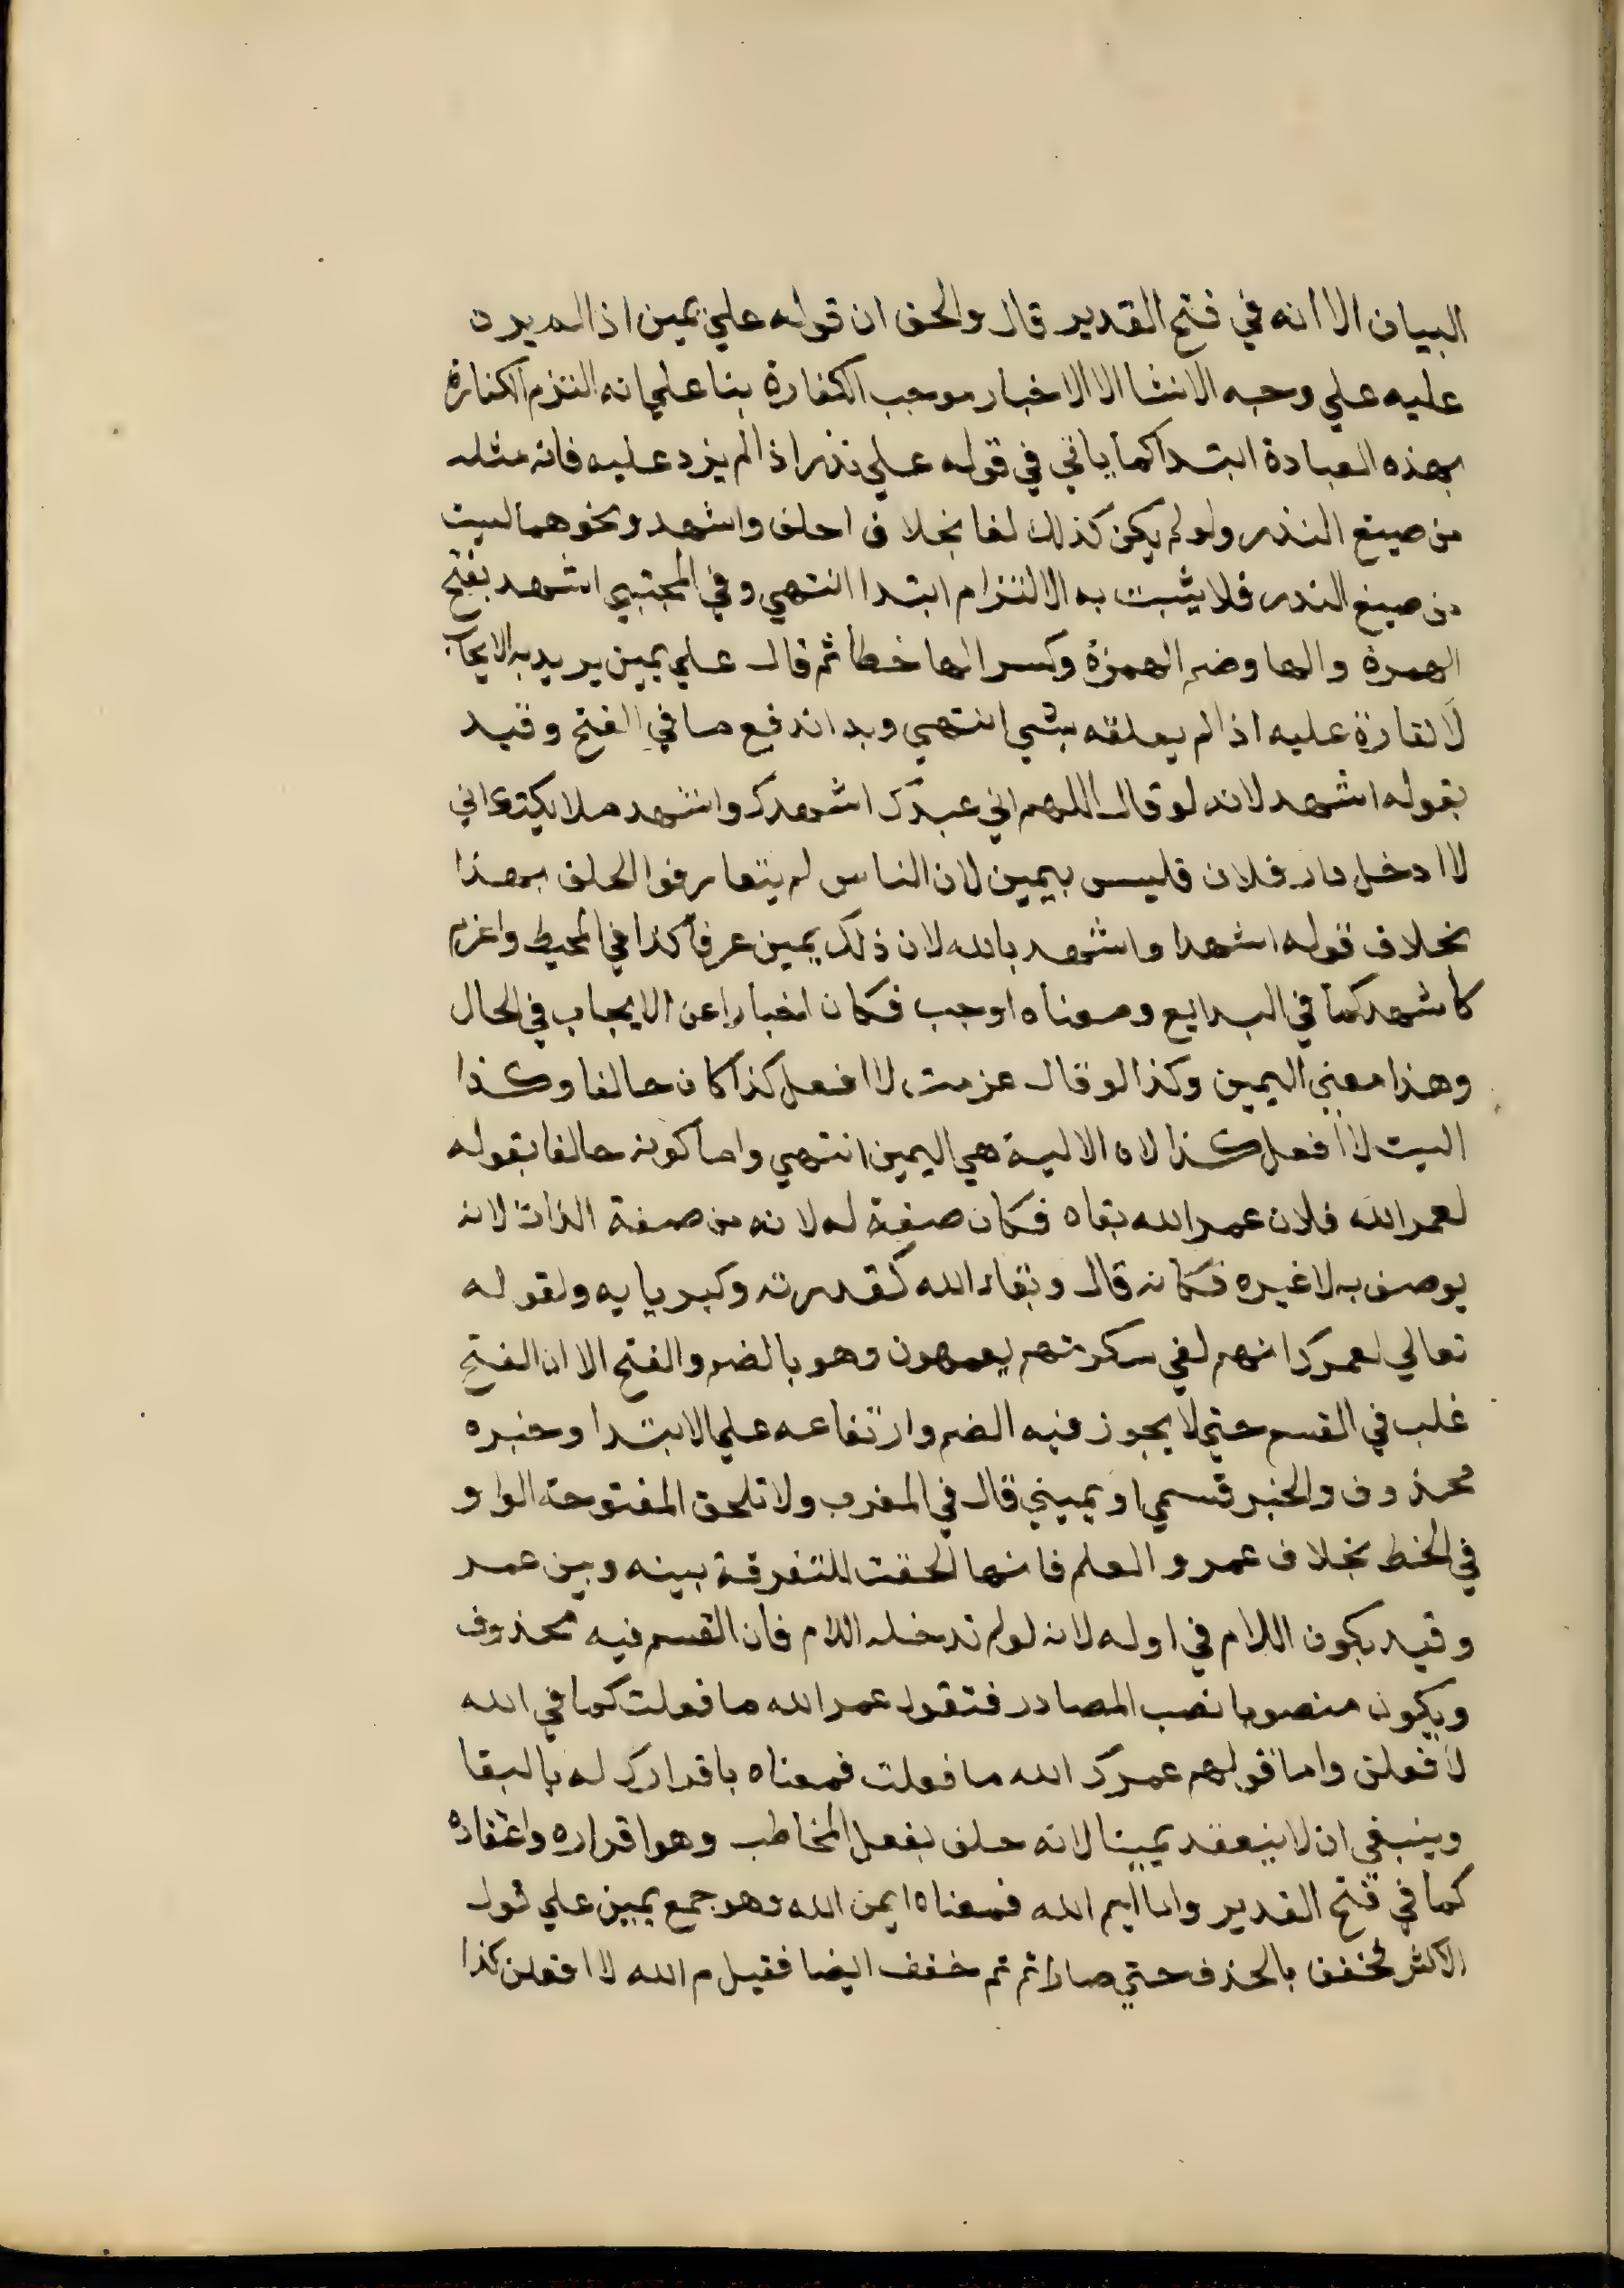 البيان الا انه في فتح القدير قال والحق ان قوله علي يمين اذا لم يرد
عليه علي وجه الانشا لا الاخبار موجب الكفارة بنا علي انه التزم الكفارة
بهذه العبادة ابتدا كما ياتي في قوله علي نذر اذا لم يزد عليه فانه مثله
من صيغ النذر ولو لم يكن كذلك لغا بخلاف احلف واشهد ونحوهما ليست
من صيغ النذر فلا يثبت به الالتزام ابتدا انتهي وفي المجتبي اشهد بفتح
الهمزة والها وضم الهمزة وكسر الها خطأ ثم قال علي يمين يريد به الايجاب
لا كفارة عليه اذا لم يعلقه بشي انتهي وبه اندفع ما في الفتح وقيد
بقوله اشهد لانه لو قال اللهم اني عبدك اشهدك واشهد ملايكتك اني
لا ادخل دار فلان فليس بيمين لان الناس لم يتعارفوا الحلف بهذا
بخلاف قوله اشهد او اشهد بالله لان ذلك يمين عرفا كذا في المحيط واعزم
كاشهد كما في البدايع ومعناه اوجب فكان اخبارا عن الايجاب في الحال
وهذا معني اليمين وكذا لو قال عزمت لا افعل كذا كان حالفا وكذا
اليت لا افعل كذا لان الالية هي اليمين انتهي واما كونه حالفا بقوله
لعمر الله فلان عمر الله بقاه فكان صفة له لانه من صفة الذات لانه
يوصف به لا غيره فكانه قال وبقاء الله كقدرته وكبريايه ولقوله
تعالي لعمرك انهم لفي سكرتهم يعمهون وهو بالضم والفتح الا ان الفتح
غلب في القسم حتي لا يجوز فيه الضم وارتفاعه علي الابتدا وخبره
محذوف والخبر قسمي او يميني قال في المغرب ولا تلحق المفتوحة الواو
في الخط بخلاف عمرو العلم فانها الحقت للتفرقة بينه وبين عمر
وقيد بكون اللام في اوله لانه لو لم تدخله اللام فان القسم فيه محذوف
ويكون منصوبا نصب المصادر فتقول عمر الله ما فعلت كما في الله
لافعلن واما قولهم عمرك الله ما فعلت فمعناه باقرارك له بالبقا
وينبغي ان لا ينعقد يمينا لانه حلف بفعل المخاطب وهو اقراره واعتقاده
كما في فتح القدير واما ايم الله فمعناه ايمن الله وهو جمع يمين علي قول
الاكثر فخفف بالحذف حتي صار ايم ثم خفف ايضا فقيل م الله لا افعلن كذا